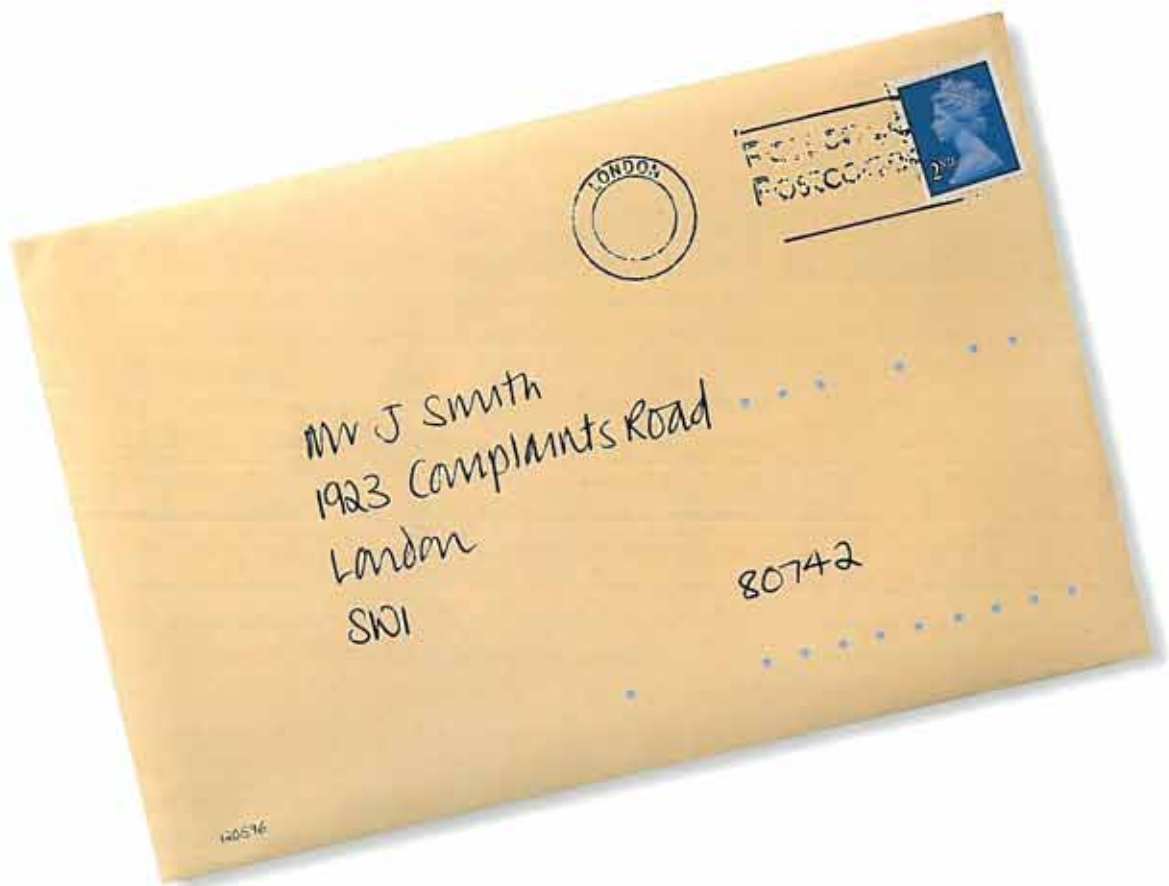 LONDON
2ND
Mr J Smith
1923 Complaints Road
London
SW1
80742
120596